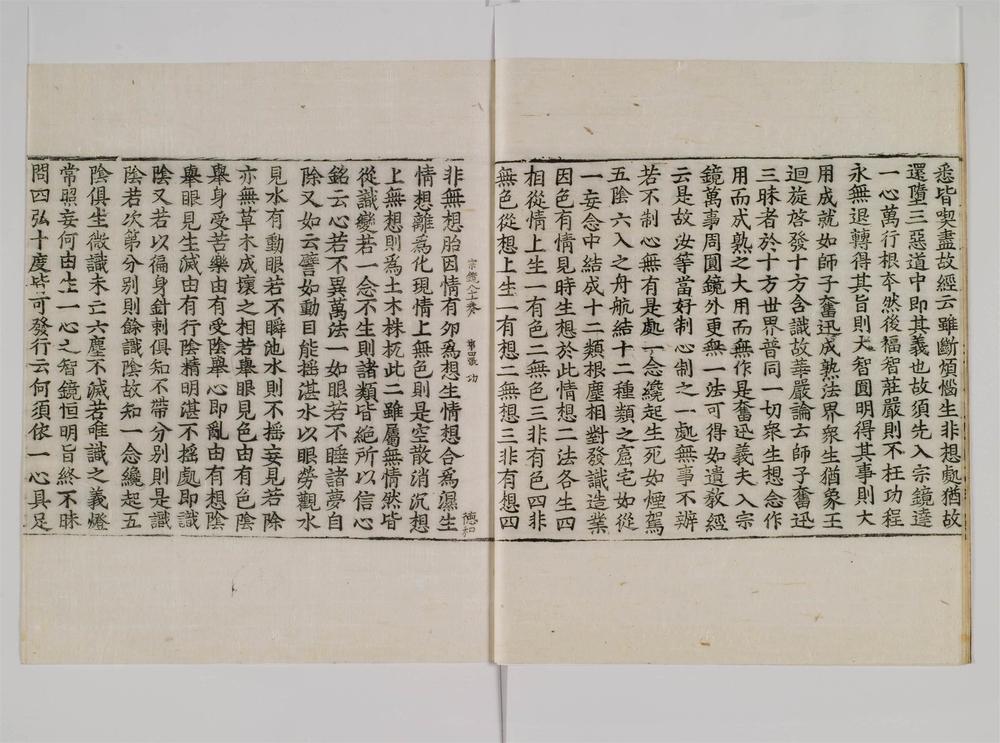 悉皆喫盡故經云雖斷煩惱生非想處猶故
還墮三惡道中即其義也故須先入宗鏡達
一心萬行根夲然後福智莊嚴則不枉功程
永無退轉得其旨則大智圓明得其事則大
用成就如師子奮迅成熟法界衆生猶象王
迴旋啓發十方含識故華嚴論云師子奮迅
三昧者於十方世界普同一切衆生想念作
用而成熟之大用而無作是奮迅義夫入宗
鏡萬事周圓鏡外更無一法可得如遺敎經
云是故汝等當好制心制之一處無事不辨
若不制心無有是處一念纔起生死如煙駕
五陰六入之舟航結十二種類之窟宅如從
一妄念中結成十二類根塵相對發識造業
因色有情見時生想於此情想二法各生四
相從情上生一有色二無色三非有色四非
無色從想上生一有想二無想三非有想四
非無想胎因情有夘爲想生情想合爲濕生
情想離爲化現情上無色則是空散消沉想
上無想則爲土木株杌此二雖屬無情然皆
從識變若一念不生則諸類皆絶所以信心
銘云心若不異萬法一如眼若不睡諸夢自
除又如云譬如動目能揺湛水以眼勞觀水
見水有動眼若不瞬池水則不揺妄見若除
亦無草木成壞之相若擧眼見色由有色陰
擧身受苦樂由有受陰擧心即亂由有想陰
擧眼見生滅由有行陰精明湛不揺處即識
陰又若以徧身針刺俱知不帶分别則是識
陰若次第分别則餘識陰故知一念纔起五
陰俱生微識未亡六塵不滅若唯識之義燈
常照妄何由生一心之智鏡恒明旨終不昧
問四弘十度皆可發行云何須依一心具足